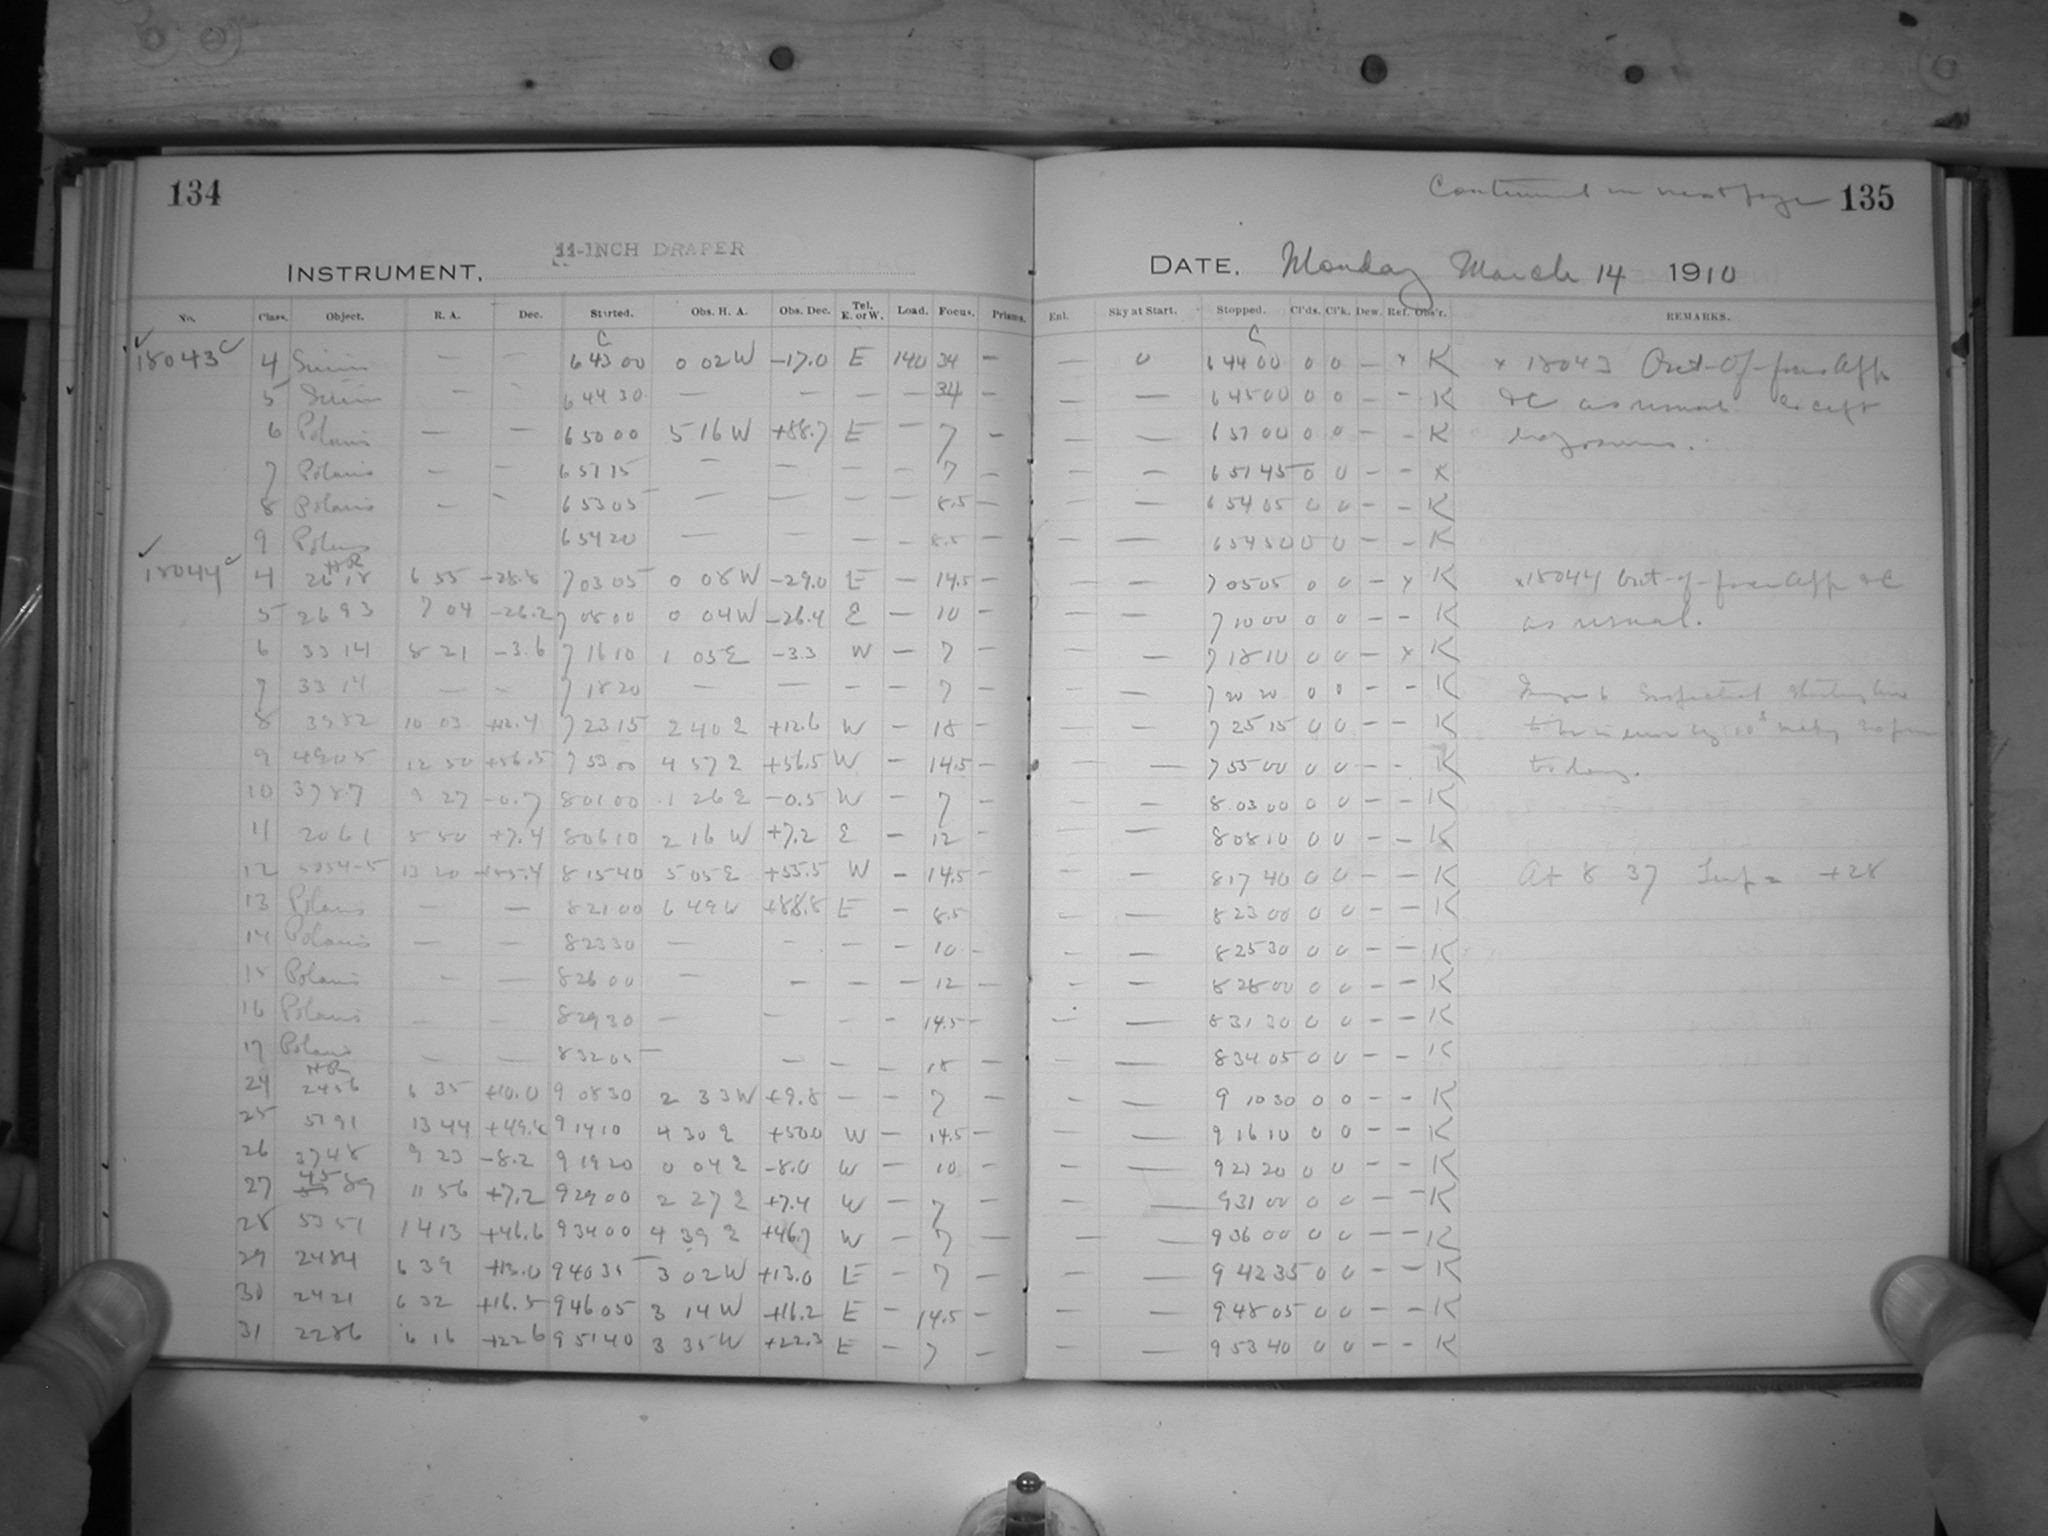 134
Continued on next page 135
11-INCH DRAPER
INSTRUMENT.
DATE. Monday March 14 1910
No. Class. Object. R. A. Dec. Started. Obs. H. A. Obs. Dec. Tel. E. or W. Load. Focus. Prisms. Enl. Sky at Start. Stopped. Cl'ds. Cl'k. Dew. Ref. Obs'r. REMARKS.
C C
18043 C 4 Sirius — — 6 43 00 0 02 W -17.0 E 140 34 — — 0 6 44 00 0 0 — x K x 18043 Out-of-focus App
5 Sirius — — 6 44 30 — — — — 34 — — — 6 45 00 0 0 — — K &C as usual except
6 Polaris — — 6 50 00 5 16 W +88.7 E — 7 — — — 6 51 00 0 0 — — K
7 Polaris — — 6 51 15 — 7 — — — 6 51 45 0 0 — — K
8 Polaris — — 6 53 05 — — — — 8.5 — — — 6 54 05 0 0 — — K
9 Polaris 6 54 20 — — — — 8.5 — — — 6 54 50 0 0 — — K
HR
18044 C 4 2618 6 55 -28.8 7 03 05 0 08 W -29.0 E — 14.5 — — — 7 05 05 0 0 — x K x 18044 Out-of-focus App &C
5 2693 7 04 -26.2 7 08 00 0 04 W -26.4 E — 10 — — — 7 10 00 0 0 — — K as usual.
6 3314 8 21 -3.6 7 16 10 1 05 E -3.3 W — 7 — — 7 18 10 0 0 — x K
7 3314 — — 7 18 20 — — — — 7 — — — 7 20 20 0 0 — — K Image 6 Suspected starting time
8 3982 10 03 +12.4 7 23 15 2 40 E +12.6 W — 18 — — — 7 25 15 0 0 — — K to be in error by 10s
9 4905 12 50 +56.5 7 53 00 4 57 E +56.5 W — 14.5 — — — 7 55 00 0 0 — — K to long.
10 3787 9 27 -0.7 8 01 00 1 26 E -0.5 W — 7 — — — 8 03 00 0 0 — — K
11 2061 5 50 +7.4 8 06 10 2 16 W +7.2 E — 12 — — — 8 08 10 0 0 — — K
12 5054-5 13 20 +55.4 8 15 40 5 05 E +55.5 W — 14.5 — — — 8 17 40 0 0 — — K At 8 37 Temp = +28
13 Polaris — — 8 21 00 6 49 W +88.8 E — 8.5 — — 8 23 00 0 0 — — K
14 Polaris — — 8 23 30 — — — — 10 — — — 8 25 30 0 0 — — K
15 Polaris — — 8 26 00 — — — — 12 — — — 8 28 00 0 0 — — K
16 Polaris — — 8 29 30 — — — — 14.5 — — — 8 31 30 0 0 — — K
17 Polaris — — 8 32 05 — — — — 18 — — — 8 34 05 0 0 — — K
HR
24 2456 6 35 +10.0 9 08 30 2 33 W +9.8 — — 7 — — — 9 10 30 0 0 — — K
25 5191 13 44 +49.8 9 14 10 4 30 E +50.0 W — 14.5 — — 9 16 10 0 0 — — K
26 3748 9 23 -8.2 9 19 20 0 04 E -8.0 W — 10 — — — 9 21 20 0 0 — — K
27 4589 11 56 +7.2 9 29 00 2 27 E +7.4 W — 7 — — 9 31 00 0 0 — — K
28 5351 14 13 +46.6 9 34 00 4 39 E +46.7 W — 7 — — — 9 36 00 0 0 — — K
29 2484 6 39 +13.0 9 40 35 3 02 W +13.0 E — 7 — — — 9 42 35 0 0 — — K
30 2421 6 32 +16.5 9 46 05 3 14 W +16.2 E — 14.5 — — — 9 48 05 0 0 — — K
31 2286 6 16 +22.6 9 51 40 3 35 W +22.3 E — 7 — — — 9 53 40 0 0 — — K